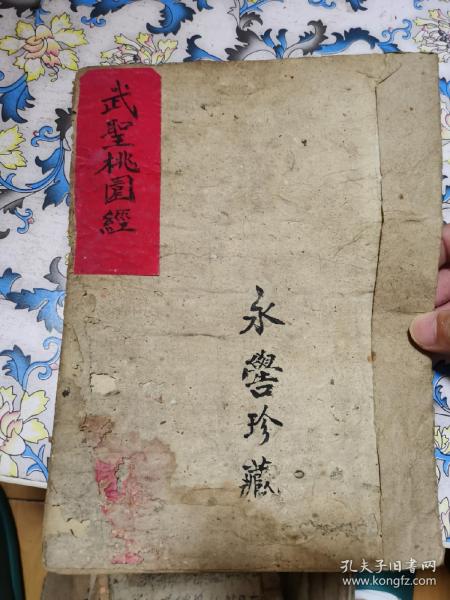 武聖桃園經
永譽珍藏
孔夫子旧书网
www.kongfz.com